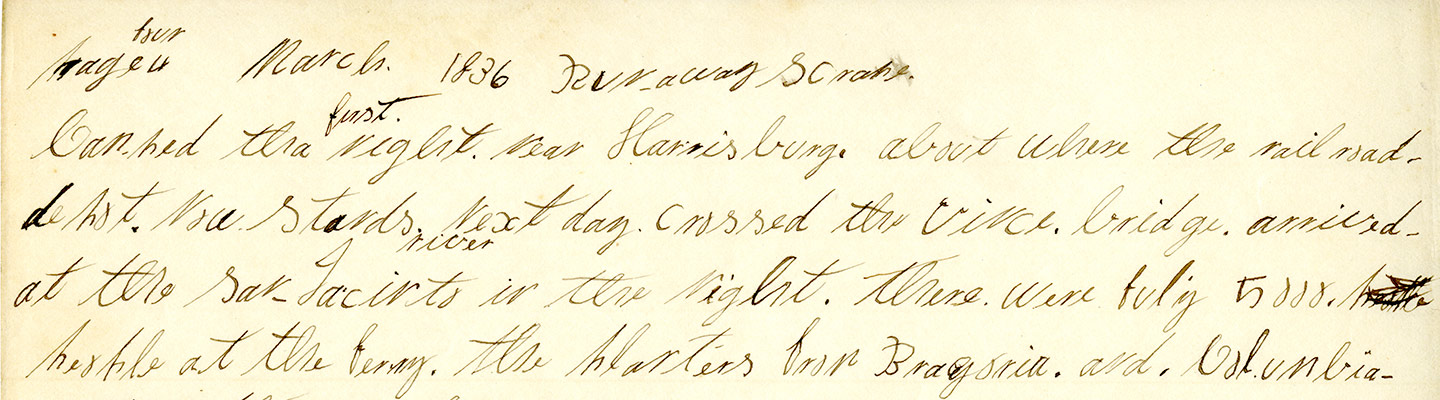 four
page 4 March. 1836 Runaway Scrape.
first.
Camped the night. near Harrisburg. about where the railroad-
depot. now stands. Next day. crossed the Vince. bridge. arrived-
river
at the San-Jacinto in the night. there. were fully 5000.
people at the ferry. the planters from Brazoria. and. Columbia-